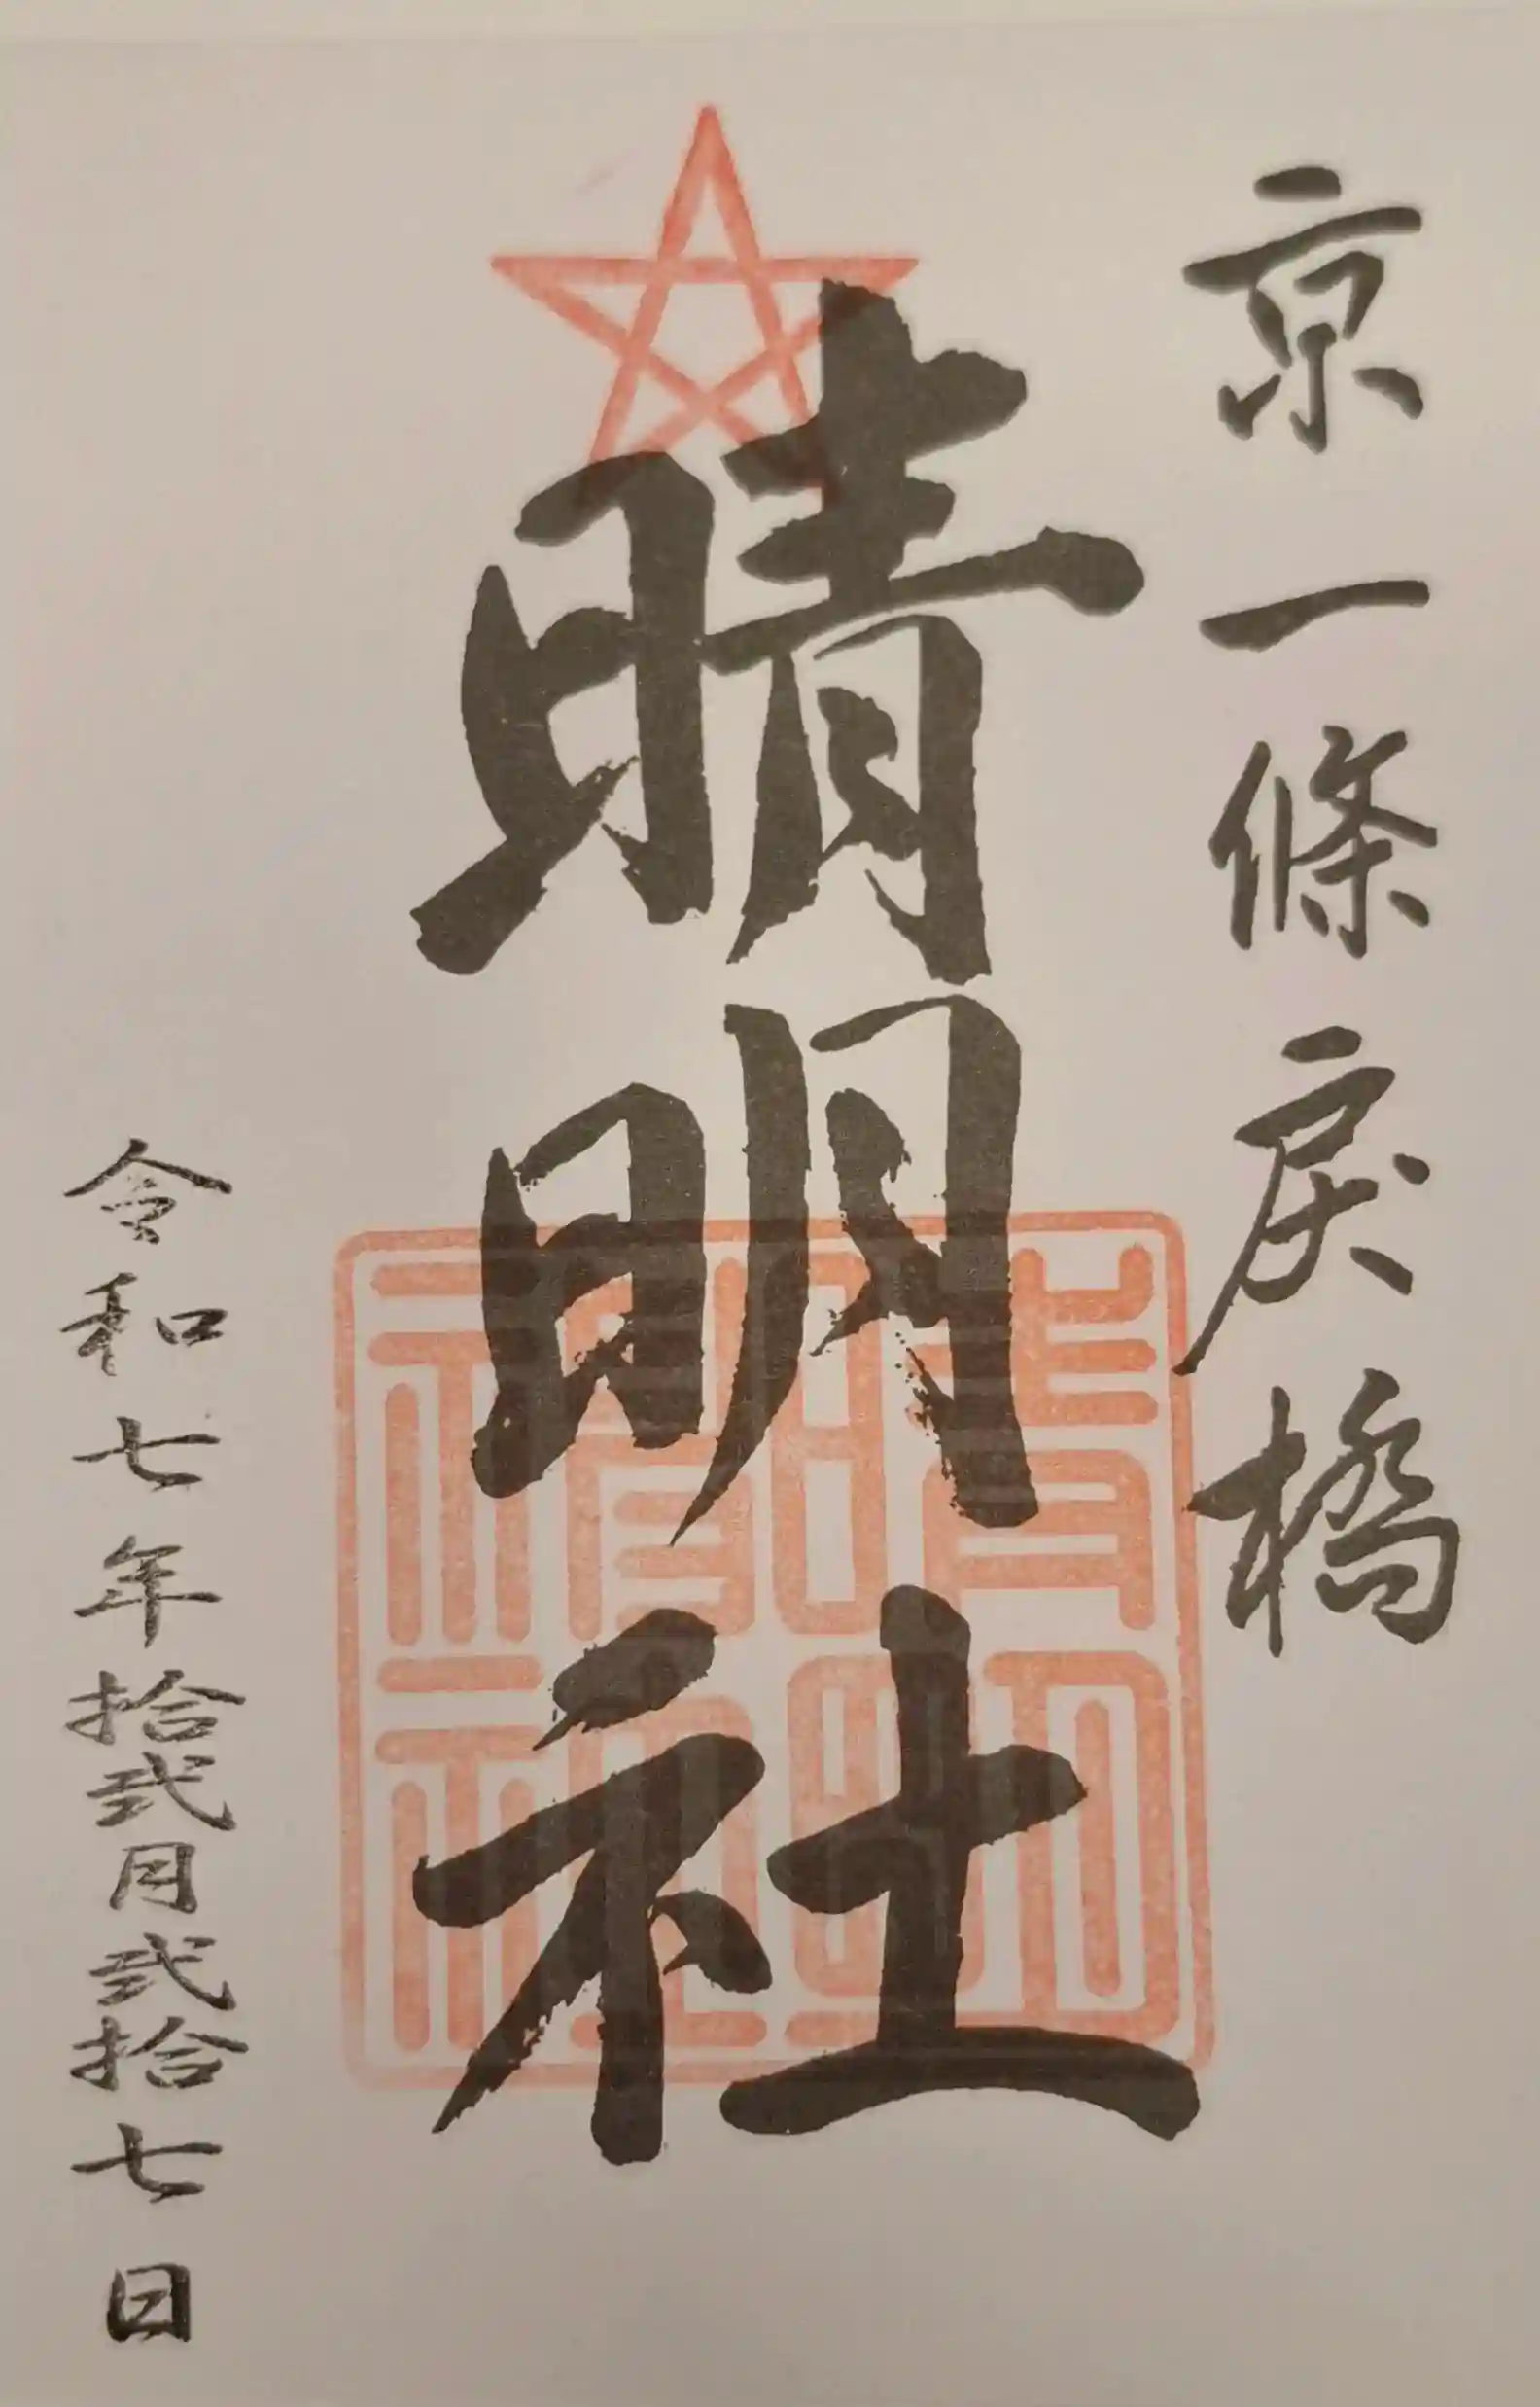 京一條戻橋
晴明社
令和七年拾弐月弐拾七日